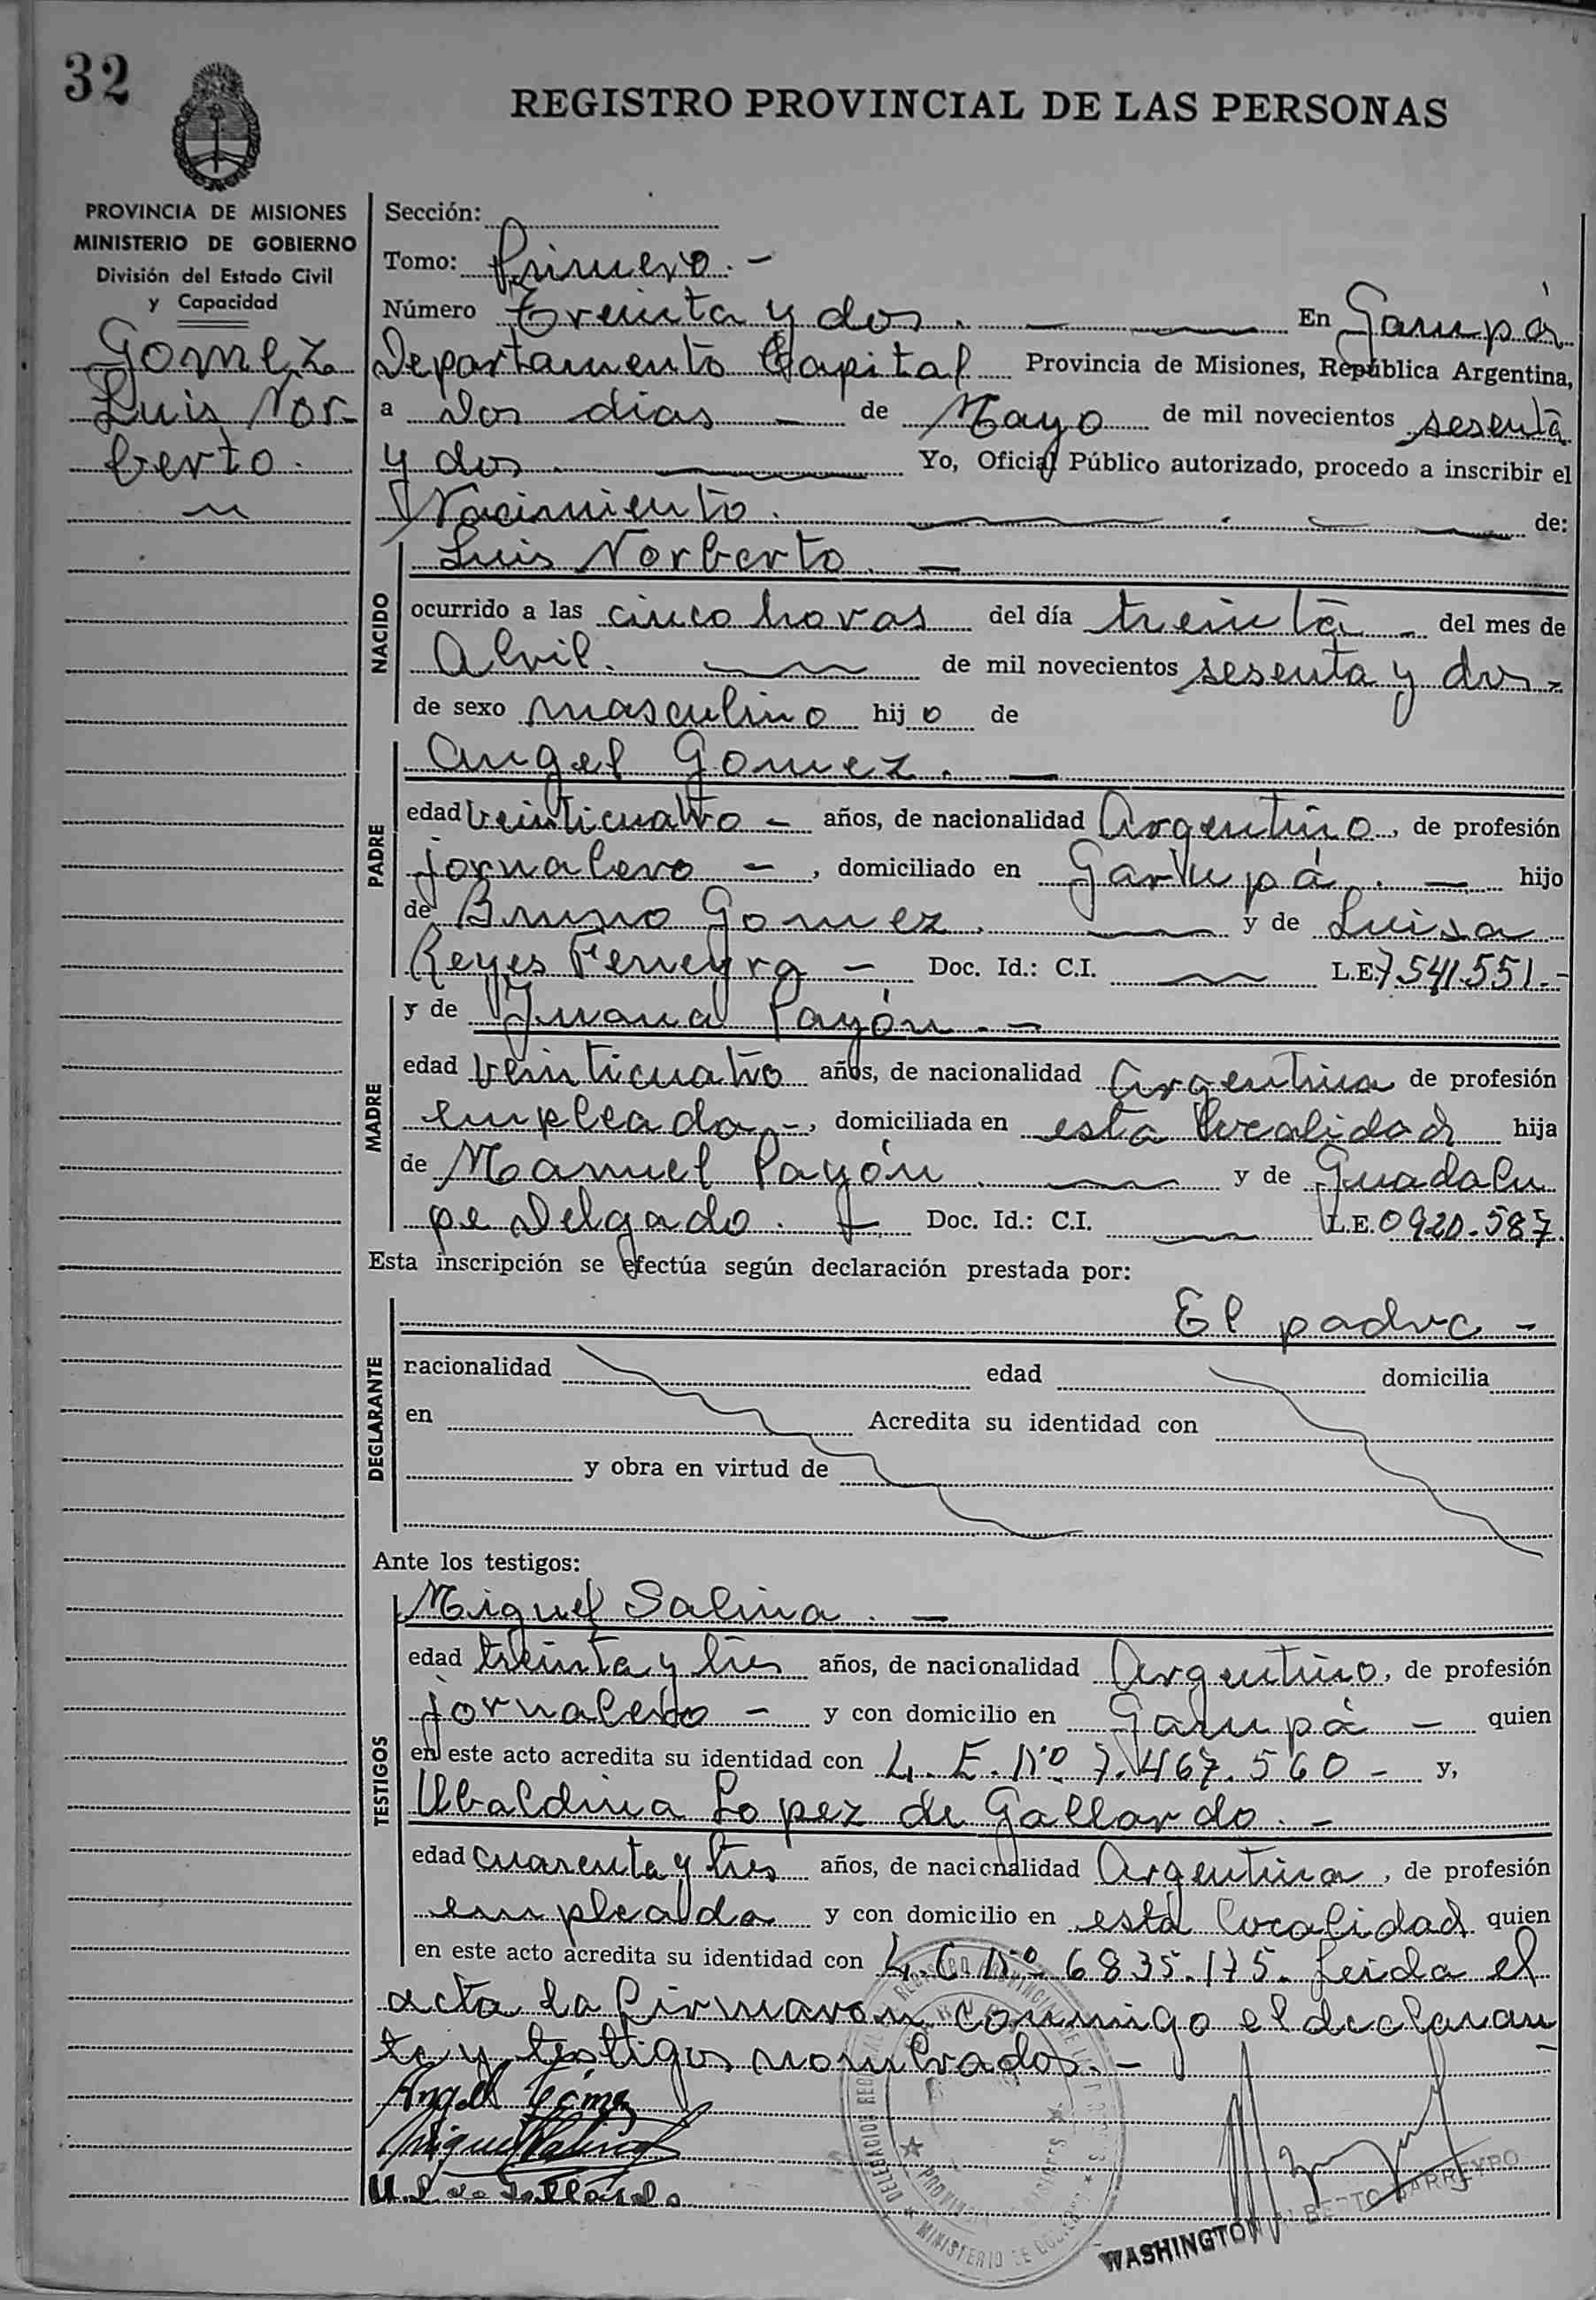 32
REGISTRO PROVINCIAL DE LAS PERSONAS
PROVINCIA DE MISIONES
MINISTERIO DE GOBIERNO
División del Estado Civil
y Capacidad
Gomez
Luis Nor-
berto.
Sección:
Tomo: Primero. -
Número Treinta y dos. En Garupá
Departamento Capital Provincia de Misiones, República Argentina,
a dos dias - de Mayo de mil novecientos sesenta
y dos. Yo, Oficial Público autorizado, procedo a inscribir el
Nacimiento. de:
NACIDO
Luis Norberto. -
ocurrido a las cinco horas del día treinta - del mes de
Abril. de mil novecientos sesenta y dos -
de sexo masculino hijo de
PADRE
Angel Gomez. -
edad veinticuatro - años, de nacionalidad Argentino, de profesión
jornalero - , domiciliado en Garupá. - hijo
de Bruno Gomez. y de Luisa
Reyes Ferreyra - Doc. Id.: C.I. L.E. 7.541.551.-
MADRE
y de Juana Payón. -
edad veinticuatro años, de nacionalidad Argentina de profesión
empleada -, domiciliada en esta localidad hija
de Manuel Payón. y de Guadalu
pe Delgado. - Doc. Id.: C.I. L.E. 0920.587
Esta inscripción se efectúa según declaración prestada por:
DECLARANTE
El padre -
nacionalidad edad domicilia
en Acredita su identidad con
y obra en virtud de
Ante los testigos:
TESTIGOS
Miguel Salina. -
edad treinta y tres años, de nacionalidad Argentino, de profesión
jornalero - y con domicilio en Garupá - quien
en este acto acredita su identidad con L.E. Nº 7.467.560 - y,
Ubaldina Lopez de Gallardo. -
edad cuarenta y tres años, de nacionalidad Argentina, de profesión
empleada y con domicilio en esta localidad quien
en este acto acredita su identidad con L.C Nº 6835.175. Leida el
acta la firmaron conmigo el declaran
te y testigos nombrados. -
Angel Gómez
Miguel Salina
U. L de Gallardo
WASHINGTON ALBERTO BARREYRO
PROVINCIA DE MISIONES
MINISTERIO DE GOBIERNO